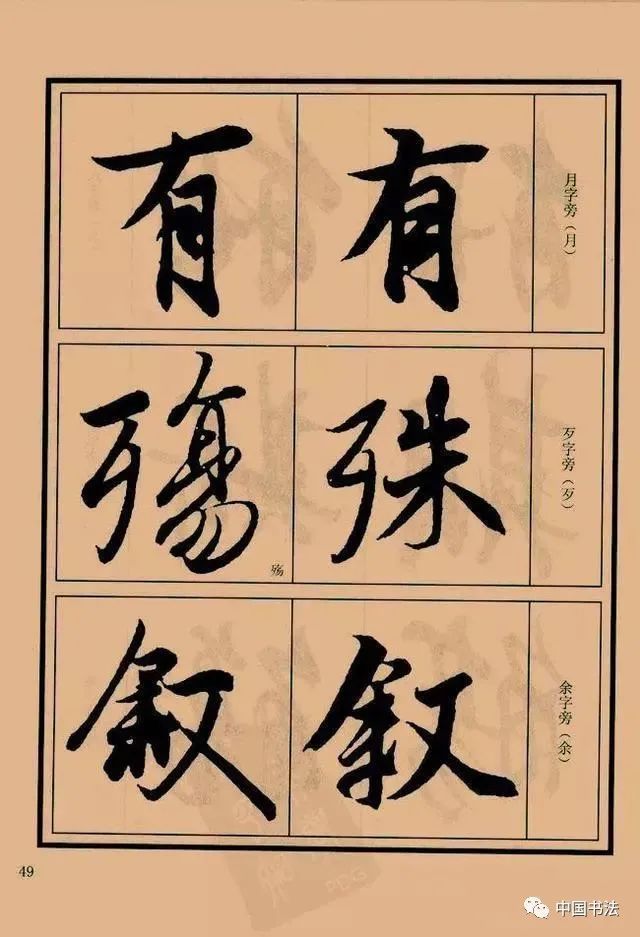 月字旁（月）
有
有
歹字旁（歹）
殊
殤
殇
余字旁（余）
叙
敘
49
中国书法